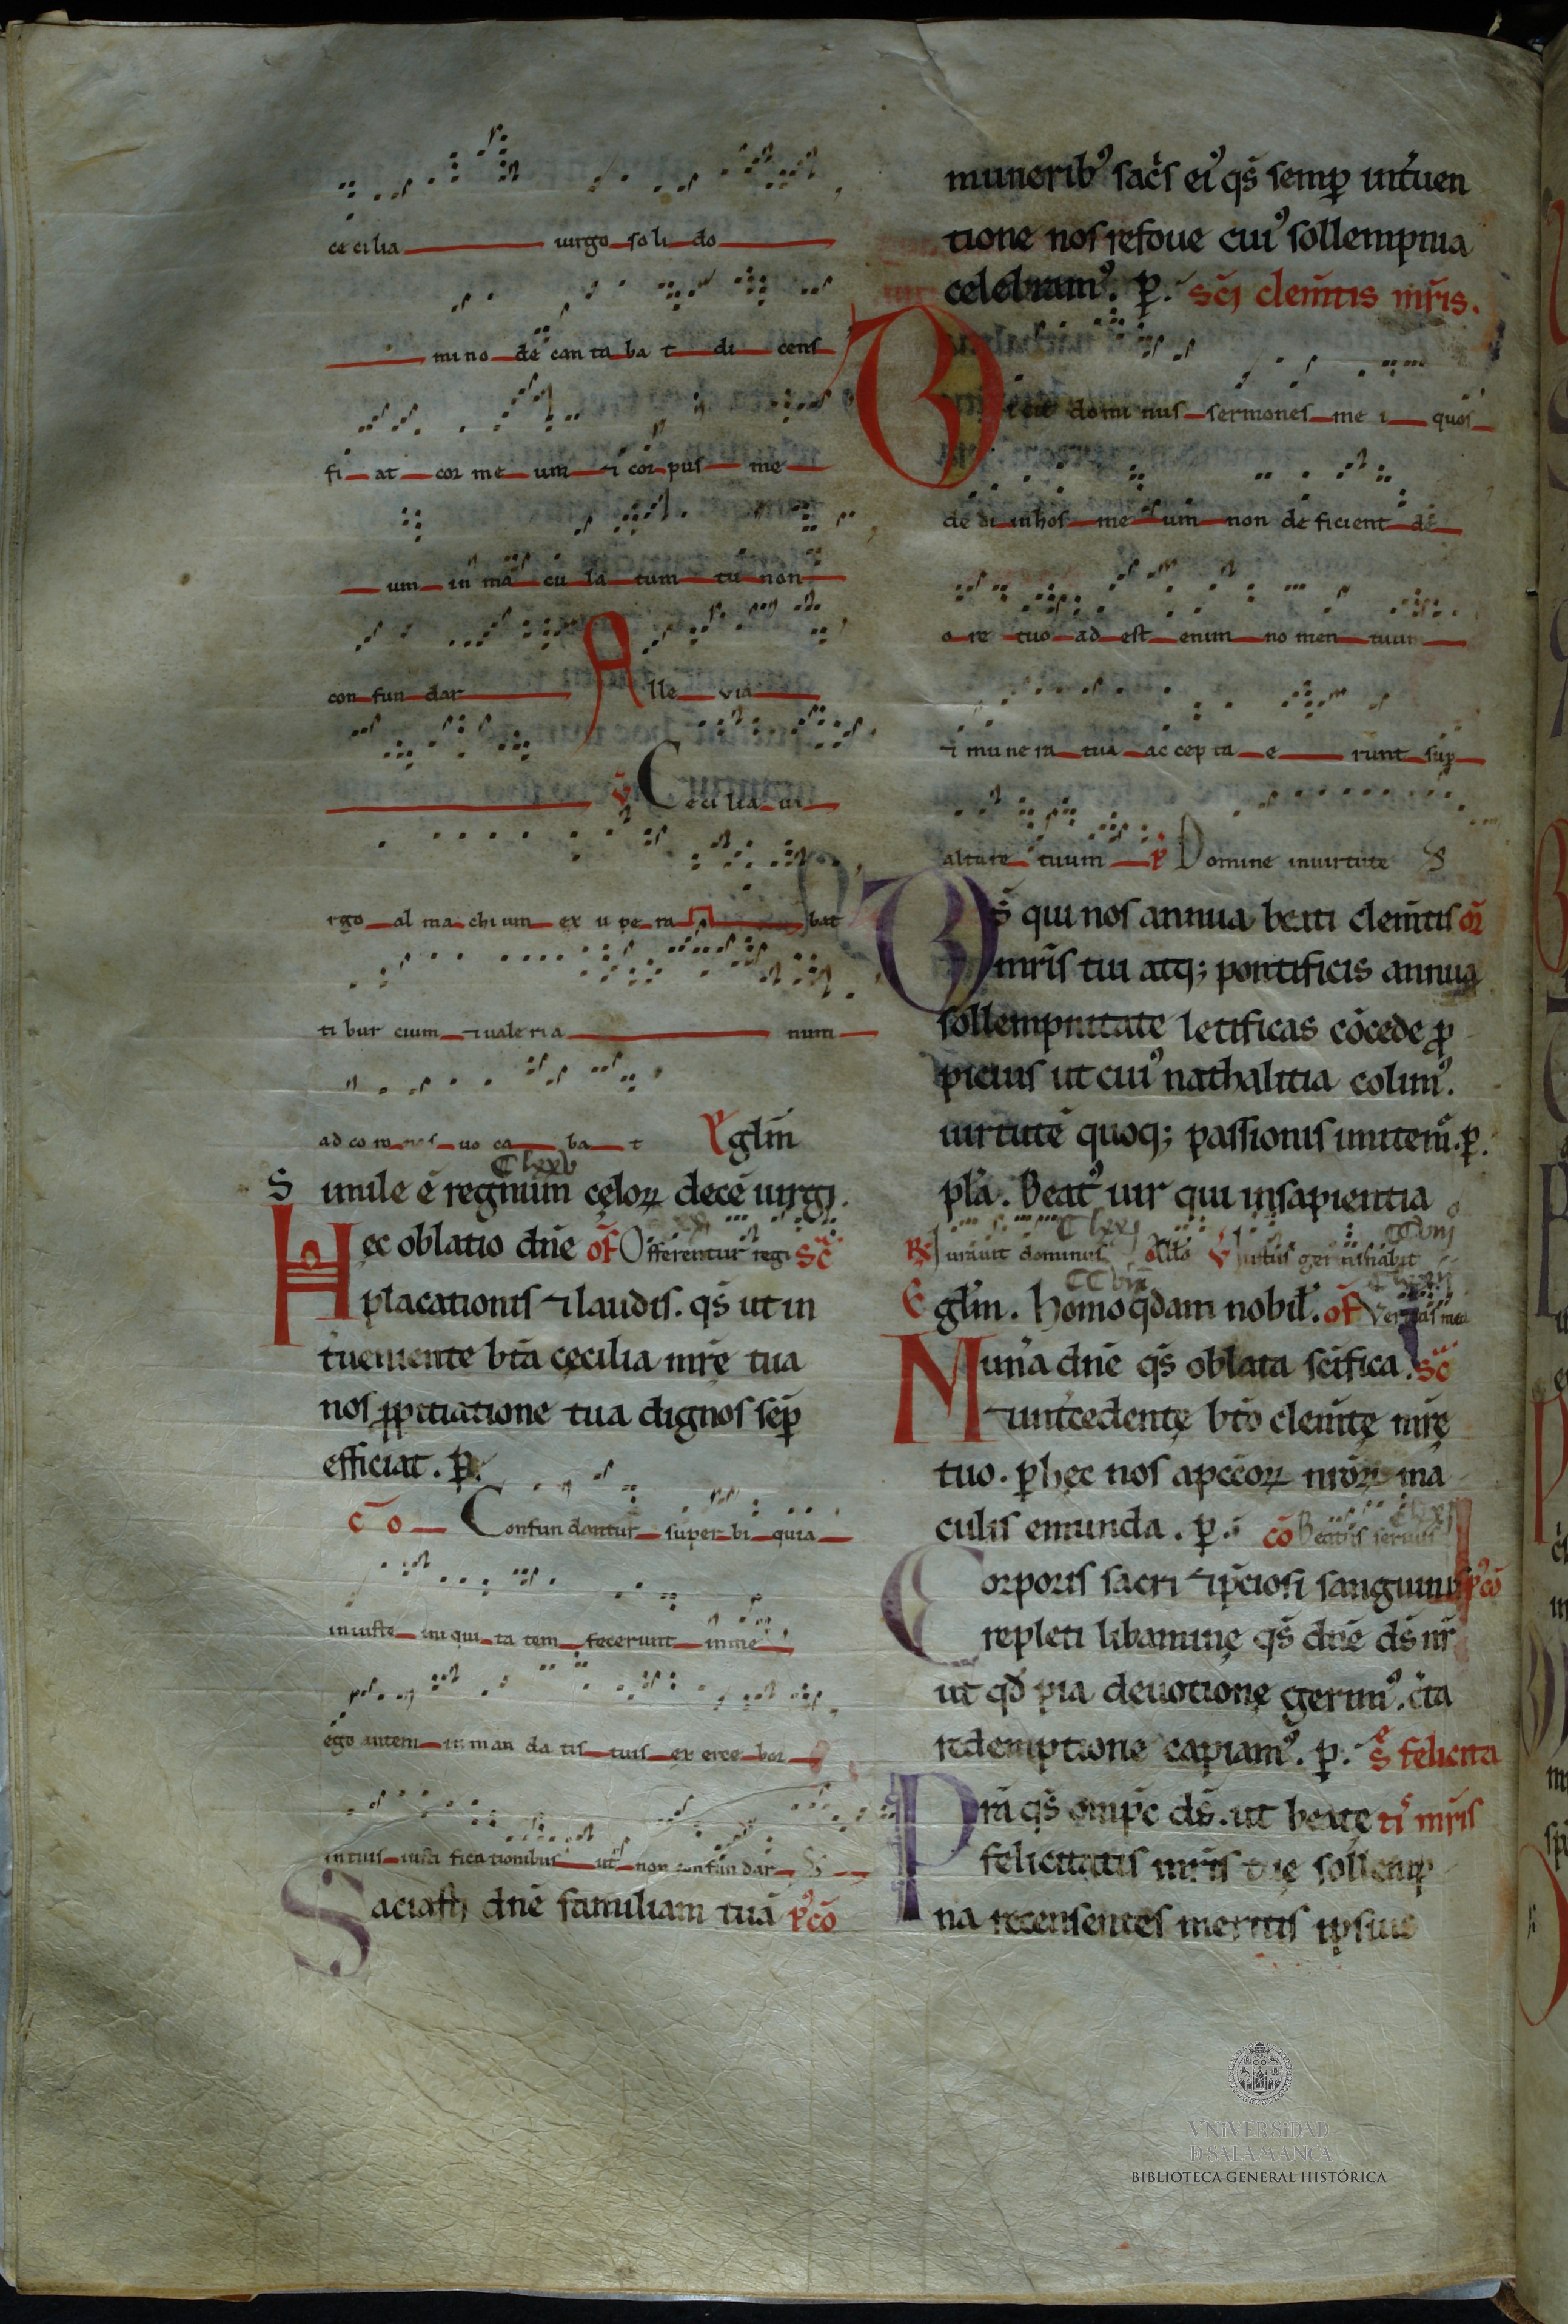 ce ci lia uirgo so li do
mi no de can ta ba t di cens
fi at cor me um ⁊ cor pus me
um in ma cu la tum tu non
con fun dar Alle via
v̄ Ceci lia ui
rgo al ma chi um ex u pe ra bat
ti bur cium ⁊ uale ri a num
ad co ro nas uo ca ba t Eglm̄
Clxxv
Simile ē regnum cęloꝝ decē uirgi.
Hec oblatio dn̄e of̄ Offerentur regi Sc̄
placationis ⁊ laudis. qs̄ ut in
tueniente bt̄a cecilia mr̄e tua
nos ꝓpitiatione tua dignos sēp
efficiat. P.
c̄o Confun dantur super bi quia
iniuste ini qui ta tem fecerunt in me
ego autem in man da tis tuis ex erce bor
in tuis iusti fica tionibus ut non confun dar S
Saciasti dn̄e familiam tuā p᾿cō
munerib᾿ sac̄s ei᾿ qs̄ semꝑ int̄uen
tione nos refoue cui᾿ sollempnia
celebram᾿. p. sc̄i clem̄tis mr̄is.
Dicit domi nus sermones me i quos
de di in hos me um non de ficient de
o re tuo ad est enim no men tuum
⁊ mune ra tua ac cep ta e runt suꝑ
altare tuum P Domine in uirtute S
Ds̄ qui nos annua beati clem̄tis or̄
mr̄is tui atq; pontificis annua
sollempnitate letificas cōcede ꝓ
picius ut cui᾿ nathalitia colim᾿.
uirtutē quoq; passionis imitem᾿. p.
pl̄a. Beat᾿ uir qui in sapientia
Clxxj CCvnj
R Iurauit dominus All̄a V Iustus germinabit
CCvin
Eglm̄. Homo qdam nobil᾿. of̄ Veritas mea
Mun̄a dn̄e qs̄ oblata sc̄ifica. Sc̄
⁊ int̄cedentę bt̄o clem̄tę mr̄ę
tuo. ꝑ hęc nos a peccoꝝ nr̄oꝝ ma
culis emunda. p. cō Beatus seruus
Corporis sacri ⁊ p̄ciosi sanguinis p᾿cō
repleti libaminę qs̄ dn̄e ds̄ nr̄
ut qd̄ pia deuotionę gerim᾿. c̄ta
redemptione capiam᾿. p. Sc̄ę felicita
Pr̄a qs̄ omp̄c ds̄. ut beatę ti᾿ mr̄is
felicitatis mr̄is tuę sollemp
na recensentes meritis ipsius
VNiVERSiDAD
D SALAMANCA
BIBLIOTECA GENERAL HISTÓRICA